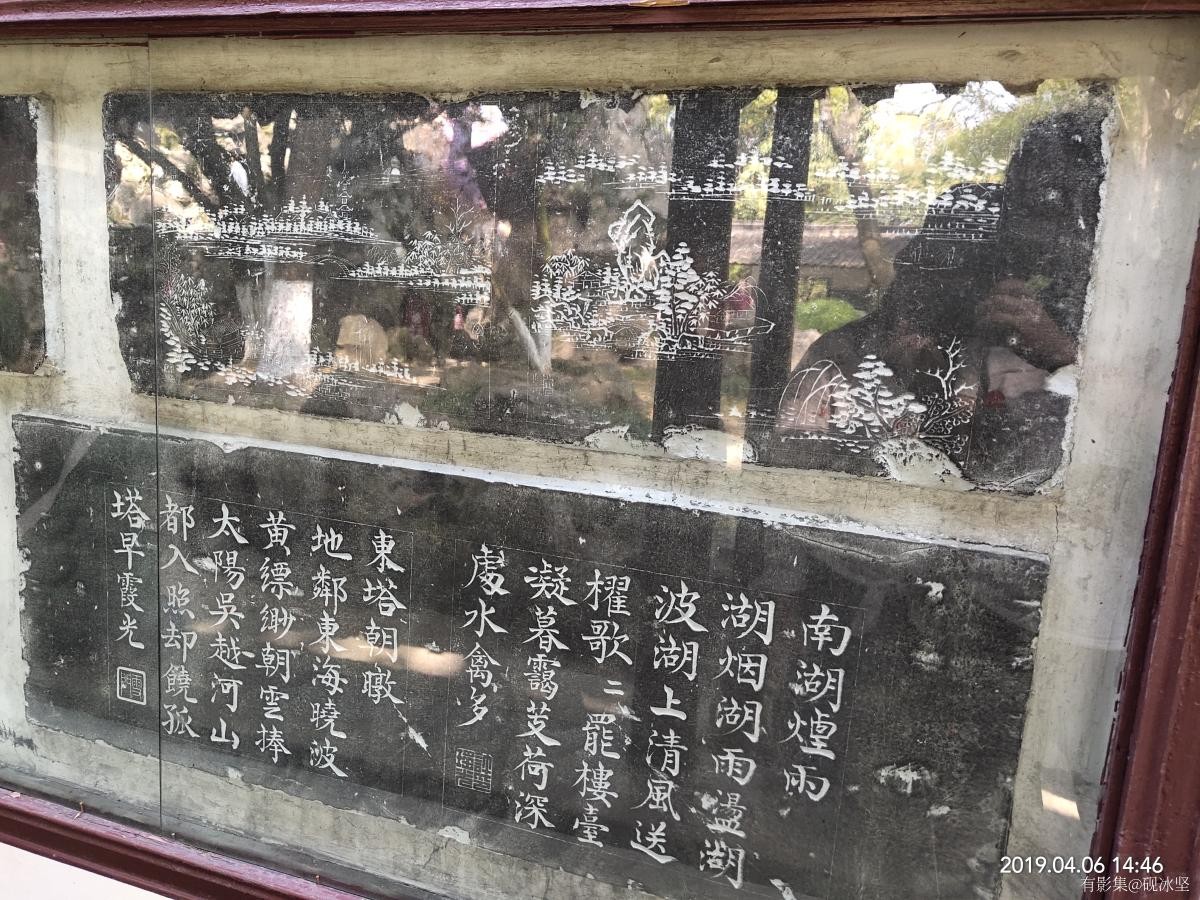 南湖煙雨
湖烟湖雨盪湖
波湖上清風送
櫂歌二罷樓臺
凝暮靄芰荷深
處水禽多
東塔朝暾
地鄰東海曉波
黄縹緲朝雲捧
太陽吳越河山
都入照却饒孤
塔早霞光
2019.04.06 14:46
有影集@砚冰坚